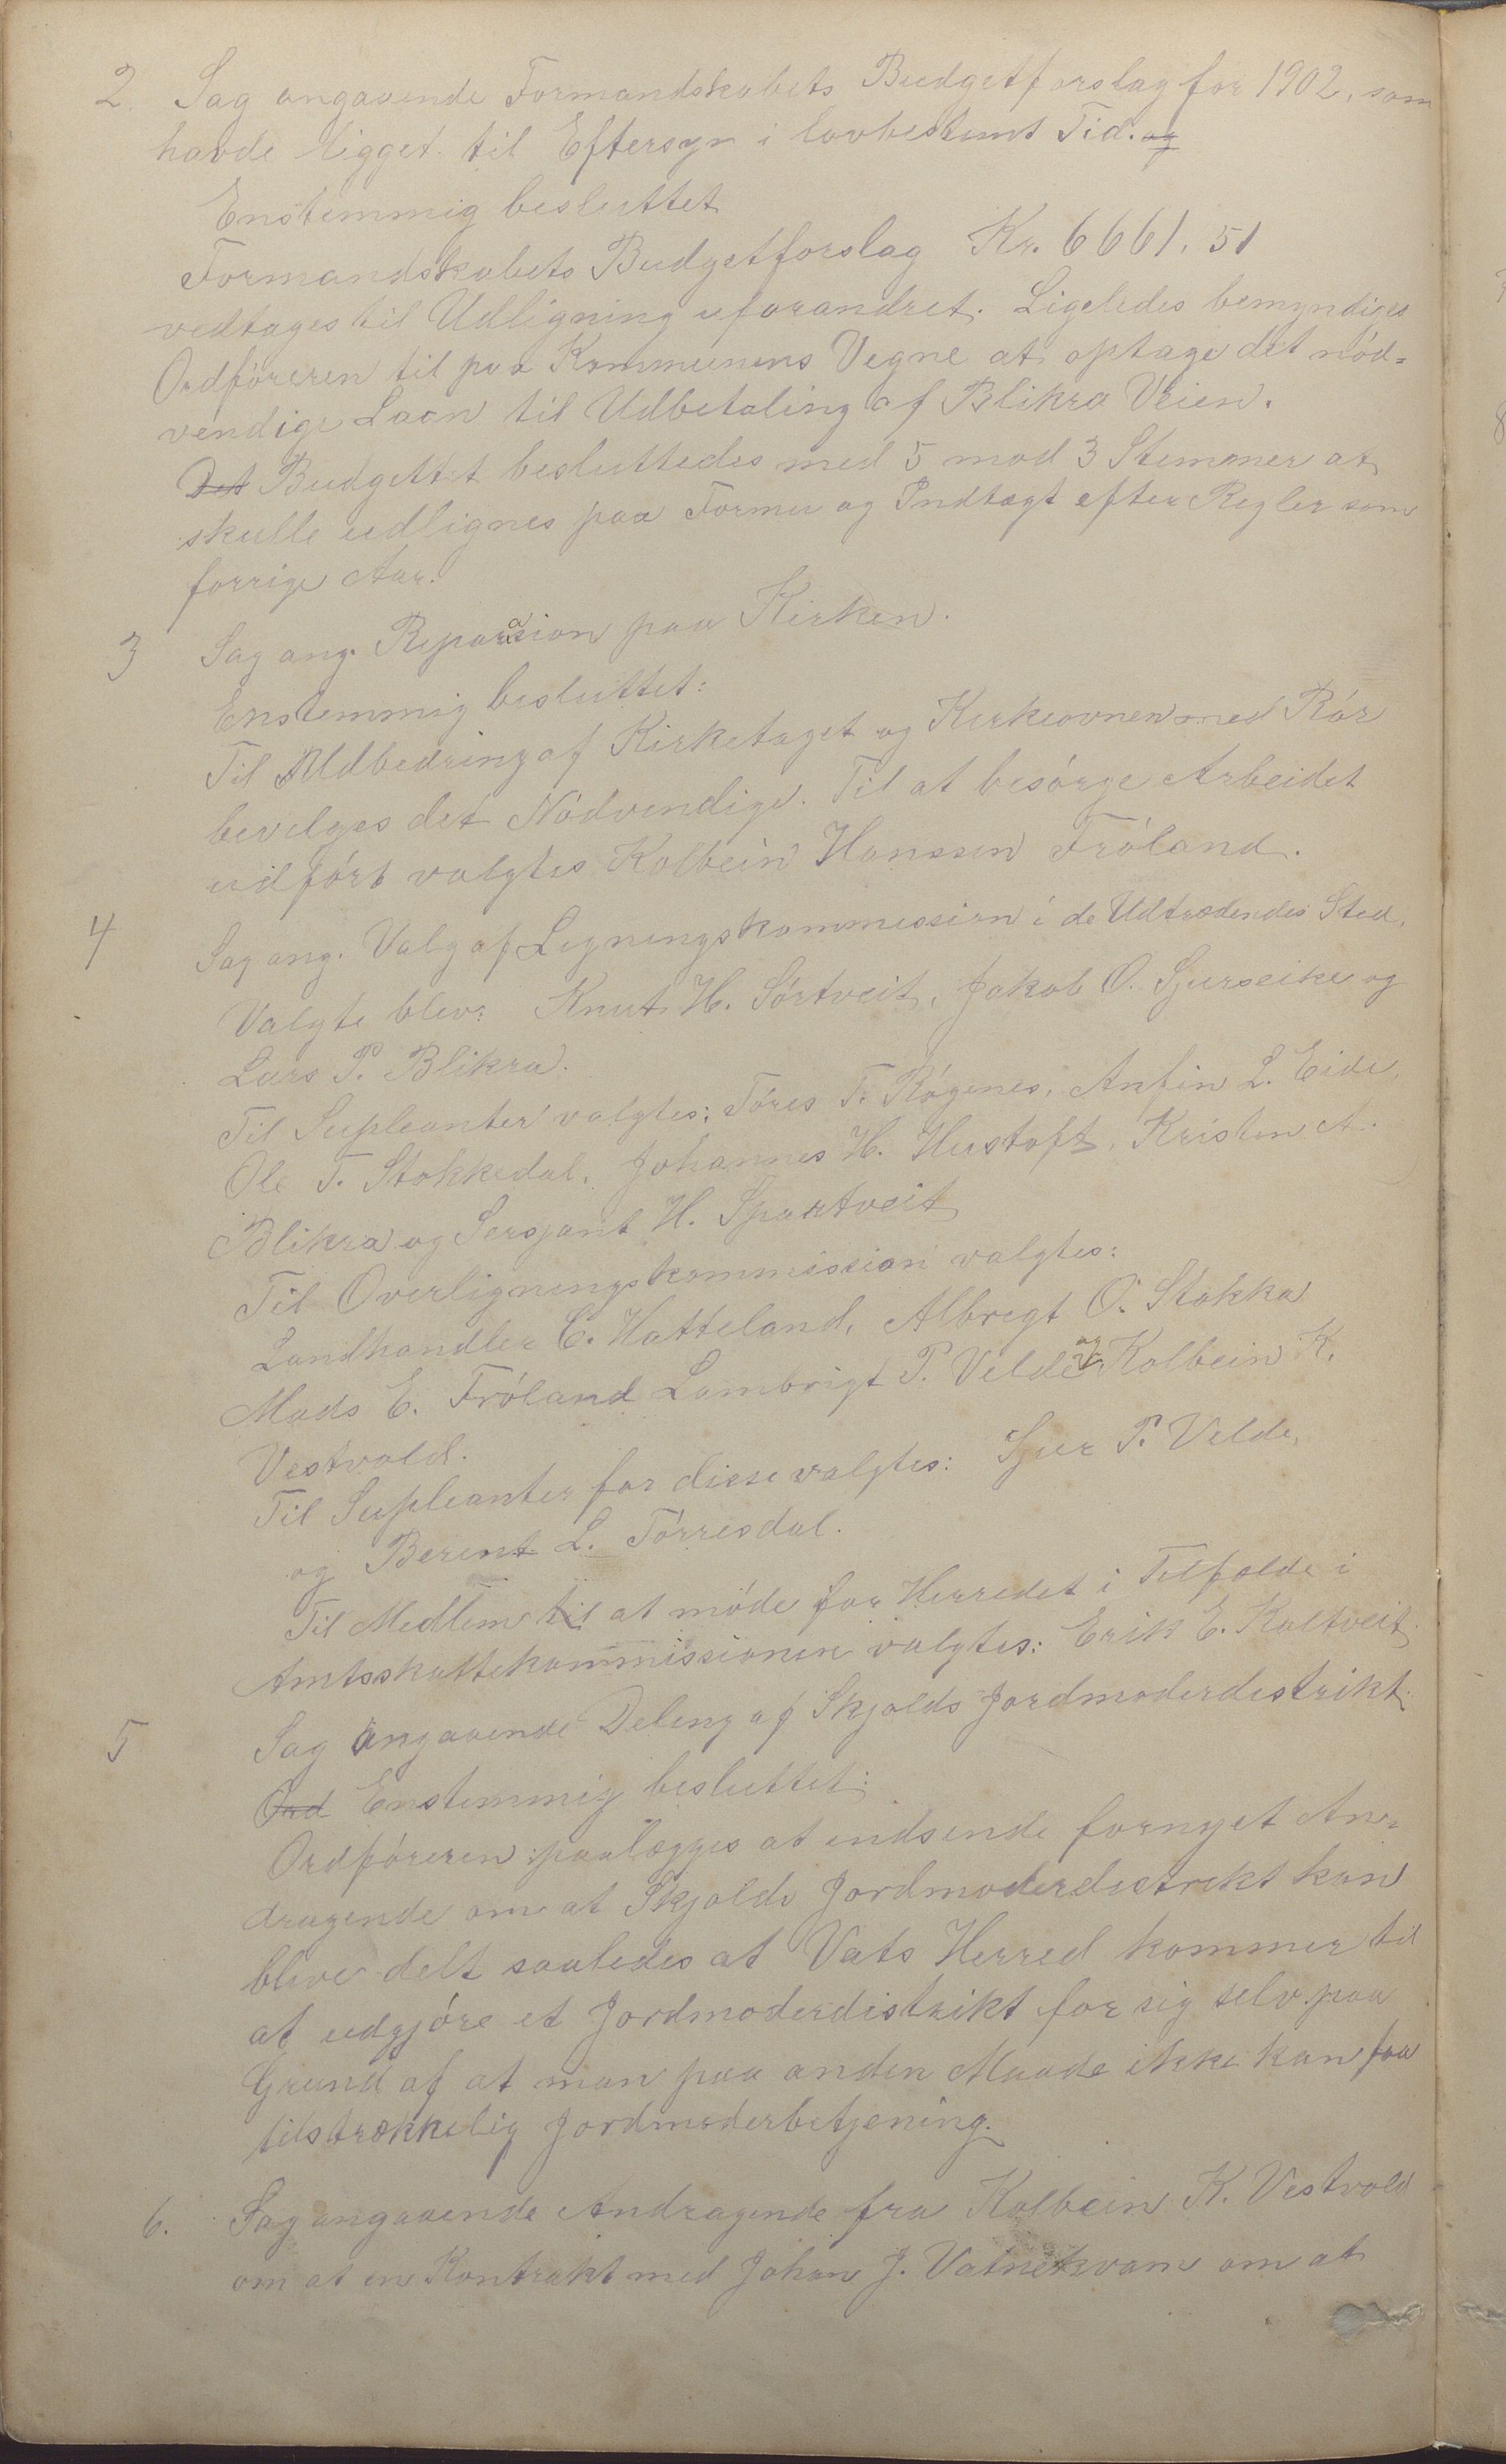 2. Sag angaaende Formandskabets Budgetforslag for 1902, som
havde ligget til Eftersyn i lovbestemt Tid. og
Enstemmig besluttet
Formandskabets Budgetforslag Kr. 6661,51
vedtages til Udligning uforandret. Ligeledes bemyndiges
Ordföreren til paa Kommunens Vegne at optage det nöd-
vendige Laan til Udbetaling af Blikra Veien.
Det Budgettet besluttedes med 5 mod 3 Stemmer at
skulle udlignes paa Formue og Indtægt efter Regler som
forrige Aar.
3 Sag ang. Reparasion paa Kirken.
Enstemmig besluttet:
Til Udbedring af Kirketaget og Kirkeovnen med Rör
bevilges det Nödvendige. Til at besörge Arbeidet
udfört valgtes Kolbein Hanssen Fröland.
4 Sag ang. Valg af Ligningskommission i de Udtrædendes Sted.
Valgte blev: Knut H. Sörtveit, Jakob O. Sjurseike og
Lars P. Blikra.
Til Supleanter valgtes: Töres T. Rögenes, Anfin L. Eide,
Ole T. Stokkedal, Johannes H. Hustoft, Kristen A.
Blikra og Sersjant H. Spaxtveit
Til Overligningskommission valgtes:
Landhandler C. Hatteland, Albregt O. Stokka
Mads E. Fröland Lambrigt P. Velde og Kolbein K.
Vestvold.
Til Supleanter for disse valgtes: Sjur P. Velde,
og Berent L. Törresdal.
Til Medlem til at möde for Herredet i Tilfælde i
Amtsskattekommissionen valgtes: Erik E. Kaltveit.
5 Sag angaaende Deling af Skjolds Jordmoderdistrikt.
Ord Enstemmig besluttet:
Ordföreren paalægges at indsende fornyet An-
dragende om at Skjolds Jordmoderdistrikt kan
blive delt saaledes at Vats Herred kommer til
at udgjöre et Jordmoderdistrikt for sig selv paa
Grund af at man paa anden Maade ikke kan faa
tilstrækkelig Jordmoderbetjening.
6. Sag angaaende Andragende fra Kolbein K. Vestvold
om at en Kontrakt med Johan J. Vatnekvam om at